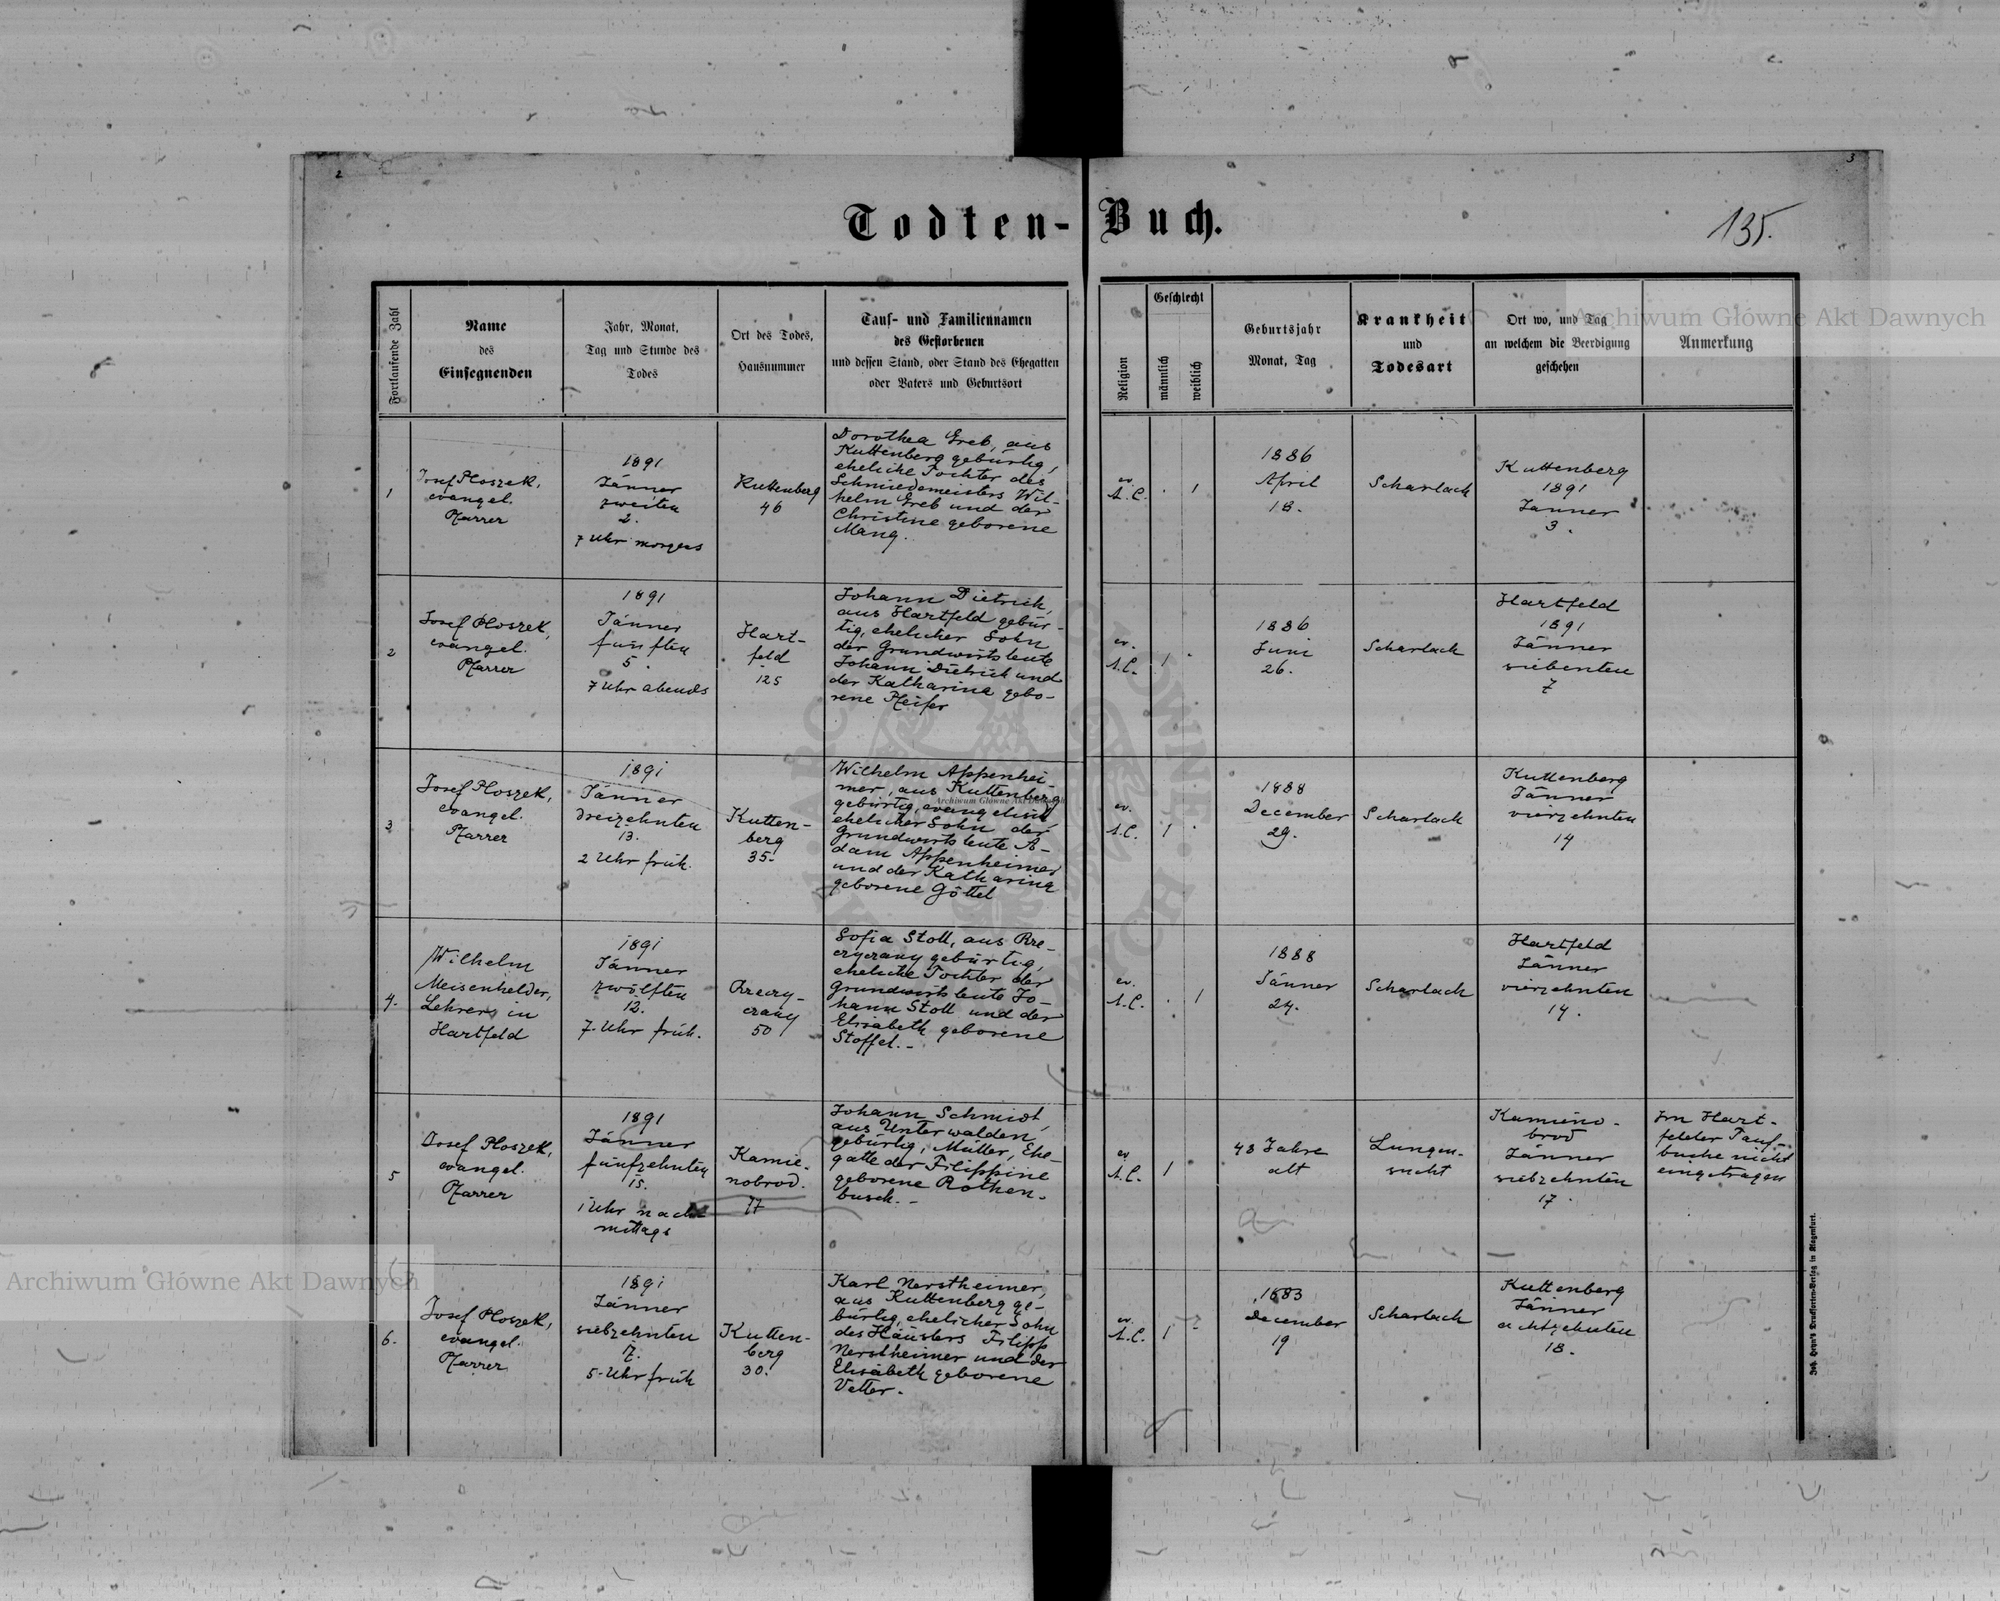 2
3
Todten-Buch.
135.
Fortlaufende Zahl
Name
des
Einsegnenden
Jahr, Monat,
Tag und Stunde des
Todes
Ort des Todes,
Hausnummer
Tauf- und Familiennamen
des Gestorbenen
und dessen Stand, oder Stand des Ehegatten
oder Vaters und Geburtsort
Religion
Geschlecht
männlich
weiblich
Geburtsjahr
Monat, Tag
Krankheit
und
Todesart
Ort wo, und Tag
an welchem die Beerdigung
geschehen
Anmerkung
1
Josef Ploszek,
evangel.
Pfarrer
1891
Jänner
zweiten
2.
7 Uhr morgens
Kuttenberg
46
Dorothea Greb, aus
Kuttenberg gebürtig,
eheliche Tochter des
Schmiedemeisters Wil-
helm Greb und der
Christine geborene
Mang.
ev.
A.C.
1
1886
April
18.
Scharlach
Kuttenberg
1891
Jänner
3.
2
Josef Ploszek,
evangel.
Pfarrer
1891
Jänner
fünften
5.
7 Uhr abends
Hart-
feld
125
Johann Dietrich,
aus Hartfeld gebür-
tig, ehelicher Sohn
der Grundwirtsleute
Johann Dietrich und
der Katharina gebo-
rene Pfeifer
ev.
A.C.
1
1886
Juni
26.
Scharlach
Hartfeld
1891
Jänner
siebenten
7
3
Josef Ploszek,
evangel.
Pfarrer
1891
Jänner
dreizehnten
13.
2 Uhr früh.
Kutten-
berg
35.
Wilhelm Appenhei
mer, aus Kuttenberg
gebürtig, evangelisch,
ehelicher Sohn der
Grundwirtsleute A-
dam Appenheimer
und der Katharina
geborene Göttel
ev.
A.C.
1
1888
December
29.
Scharlach
Kuttenberg
Jänner
vierzehnten
14
4.
Wilhelm
Meisenhelder,
Lehrer in
Hartfeld
1891
Jänner
zwölften
12.
7. Uhr früh.
50
Sofia Stoll, aus
gebürtig,
eheliche Tochter der
Grundwirtsleute Jo-
hann Stoll und der
Elisabeth geborene
Stoffel.-
ev.
A.C.
1
1888
Jänner
24.
Scharlach
Hartfeld
Jänner
vierzehnten
14.
5
Josef Ploszek,
evangel.
Pfarrer
1891
Jänner
fünfzehnten
15.
1 Uhr nach
mittags
Kamie-
nobrod.
77
Johann Schmidt,
aus Unterwalden
gebürtig, Müller, Ehe-
gatte der Filippine
geborene Rothen-
busch.-
ev.
A.C.
1
43 Jahre
alt
Lungen-
sucht
Kamieno-
brod
Jänner
siebzehnten
17.
Im Hart-
felder Tauf-
buche nicht
eingetragen
6.
Josef Ploszek,
evangel.
Pfarrer
1891
Jänner
siebzehnten
17.
5. Uhr früh
Kutten-
berg
30.
Karl Nerstheimer,
aus Kuttenberg ge-
bürtig, ehelicher Sohn
des Häuslers Filipp
Nerstheimer und der
Elisabeth geborene
Vetter.
ev.
A.C.
1
1883
December
19
Scharlach
Kuttenberg
Jänner
achtzehnten
18.
Archiwum Główne Akt Dawnych
Archiwum Główne Akt Dawnych
Archiwum Główne Akt Dawnych